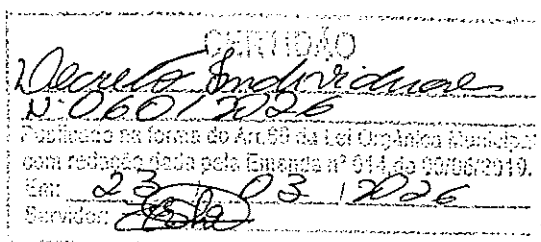 CERTIDÃO
Decreto Individual
Nº 060/2026
Publicado na forma do Art. da Lei Orgânica Municipal
com redação dada pela Emenda nº 014, de 2019.
Em: 23 / 03 / 2026
Servidor: